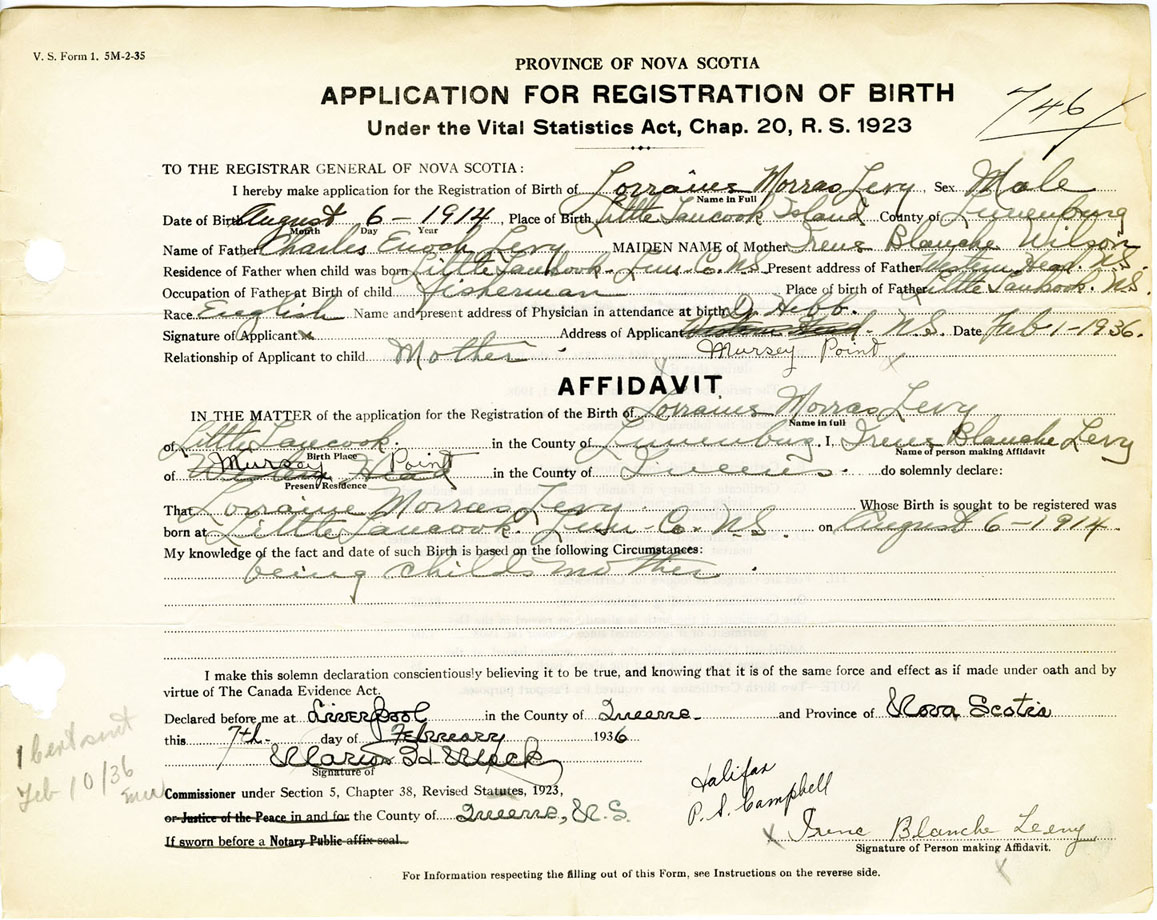 V. S. Form 1. 5M-2-35
PROVINCE OF NOVA SCOTIA
APPLICATION FOR REGISTRATION OF BIRTH
746
Under the Vital Statistics Act, Chap. 20, R. S. 1923
TO THE REGISTRAR GENERAL OF NOVA SCOTIA:
I hereby make application for the Registration of Birth of Morras Levy Sex Male
Name in Full
Date of Birth August 6 - 1914 Place of Birth Little Tancook Island County of Lunenburg
Month Day Year
Name of Father Charles Enoch Levy MAIDEN NAME of Mother Irene Blanche Wilson
Residence of Father when child was born Little Tancook. Lun. Co. N.S. Present address of Father Western Head. N.S.
Occupation of Father at Birth of child fisherman Place of birth of Father Little Tancook. N.S.
Race English Name and present address of Physician in attendance at birth Dr. Hebb.
Signature of Applicant x Address of Applicant Western Head. N.S. Date Feb 1 - 1936.
Relationship of Applicant to child Mother Mursey Point x
AFFIDAVIT
IN THE MATTER of the application for the Registration of the Birth of Morras Levy
Name in full
of Little Tancook. in the County of Lunenburg, I, Irene Blanche Levy
Birth Place Name of person making Affidavit
Mursey Point
of Western Head in the County of Queens. do solemnly declare:
Present Residence
That Lorraine Morras Levy Whose Birth is sought to be registered was
born at Little Tancook Lun. Co. N.S. on August 6 - 1914.
My knowledge of the fact and date of such Birth is based on the following Circumstances:
being childs mother.
I make this solemn declaration conscientiously believing it to be true, and knowing that it is of the same force and effect as if made under oath and by
virtue of The Canada Evidence Act.
Declared before me at Liverpool in the County of Queens and Province of Nova Scotia
this 7th day of February 1936
Mack
Signature of
1 cert sent
Feb 10/36
Commissioner under Section 5, Chapter 38, Revised Statutes, 1923,
or Justice of the Peace in and for the County of Queens, N.S.
If sworn before a Notary Public affix seal.
Halifax
P. S. Campbell
x Irene Blanche Levy
Signature of Person making Affidavit.
x
For Information respecting the filling out of this Form, see Instructions on the reverse side.